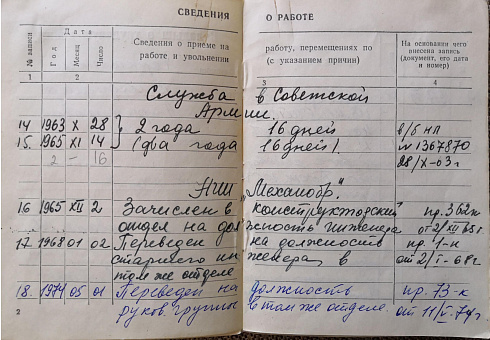 СВЕДЕНИЯ О РАБОТЕ
№ записи
Дата
Год
Месяц
Число
Сведения о приеме на
работе и увольнении
работу, перемещениях по
(с указанием причин)
На основании чего
внесена запись
(документ, его дата
и номер)
1 2 3 4
Служба в Советской
Армии.
14 1963 X 28 2 года 16 дней в/б НП
15. 1965 XI 14 (два года 16 дней). № 1367870
2 - 16 28/X-63 г
НИИ "Механобр".
16 1965 XII 2 Зачислен в конструкторский пр. 362 к
отдел на должность инженера от 2/XII 65 г
17 1968 01 02 Переведен на должность пр. 1-к
старшего инженера в от 2/I-68 г
том же отделе
18. 1974 05 01 Переведен на должность пр. 73-к
руков. группы в том же отделе. от 11/V-74 г.
2